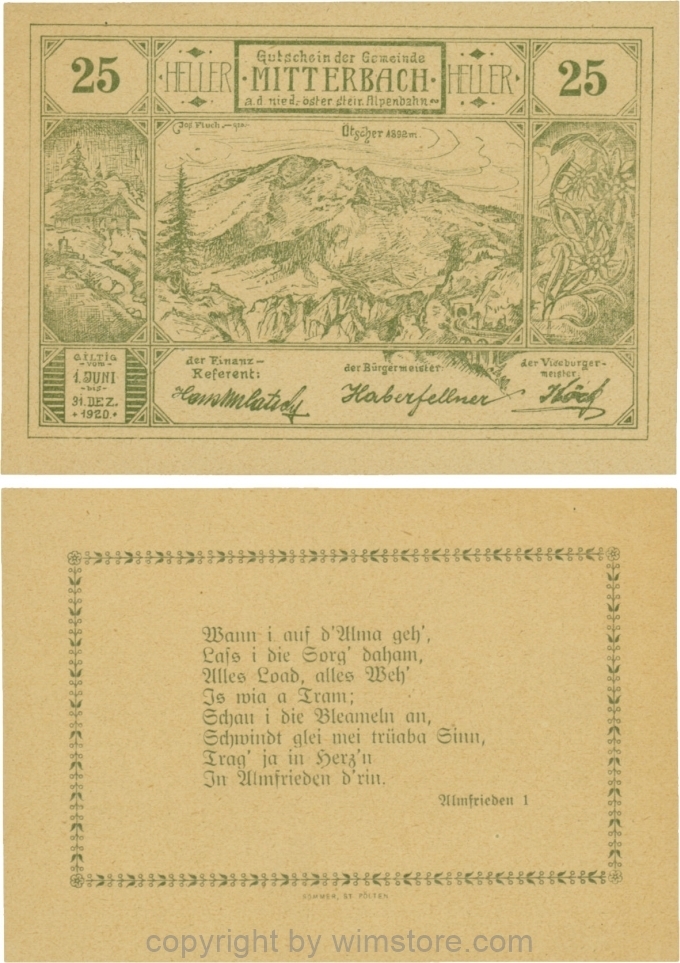 25
HELLER
Gutschein der Gemeinde
·MITTERBACH·
a.d. nied.-öster. steir. Alpenbahn.
HELLER
25
Jos. Pluch.
Ötscher 1892m.
GILTIG
-vom-
1. JUNI
-bis-
31. DEZ.
·1920·
der Finanz-
Referent:
der Bürgermeister:
Haberfellner
der Viceburger-
meister:
Wann i auf d'Alma geh',
Lass i die Sorg' daham,
Alles Load, alles Weh'
Is wia a Tram;
Schau i die Bleameln an,
Schwindt glei mei trüaba Sinn,
Trag' ja in Herz'n
In Almfrieden d'rin.
Almfrieden 1
SOMMER, ST. PÖLTEN
copyright by wimstore.com